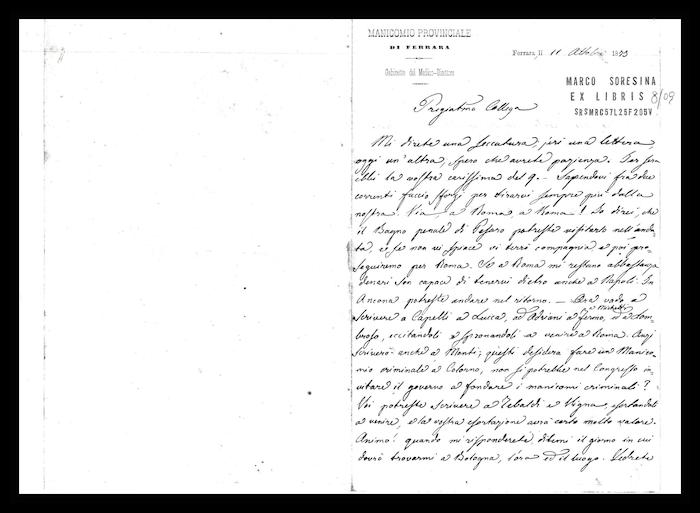 MANICOMIO PROVINCIALE
DI FERRARA
Gabinetto del Medico-Direttore
Ferrara, li 11 Ottobre 1873
MARCO SORESINA
EX LIBRIS 8/09
SRSMRC57L25F205V
Pregiatmo Collega
Mi direte una seccatura, jeri una lettera,
oggi un'altra, spero che avrete pazienza. Jer sera
ebbi la vostra carissima del 9. — Sapendovi fra due
correnti faccio sforzi per tirarvi sempre più dalla
nostra. Via, a Roma, a Roma! Io direi, che
il Bagno penale di Pesaro potreste visitarlo nell'anda
ta, e se non vi spiace vi terrò compagnia e poi pro
seguiremo per Roma. Se a Roma mi restano abbastanza
denari son capace di tenervi dietro anche a Napoli. In
Ancona potreste andare nel ritorno. — Ora vado a
scrivere a Capelli a Lucca, ad Adriani a Fermo, ed a Lom
broso, eccitandoli e spronandoli a venire a Roma. Anzi
scriverò anche a Monti; questi desidera fare un Manico
mio criminale a Colorno, non si potrebbe nel Congresso in
vitare il governo a fondare i manicomi criminali?
Voi potreste scrivere a Tebaldi e Vigna, esortandoli
a venire, e la vostra esortazione avrà certo molto valore.
Animo! quando mi risponderete ditemi il giorno in cui
dovrò trovarmi a Bologna, l'ora ed il luogo. Vedrete